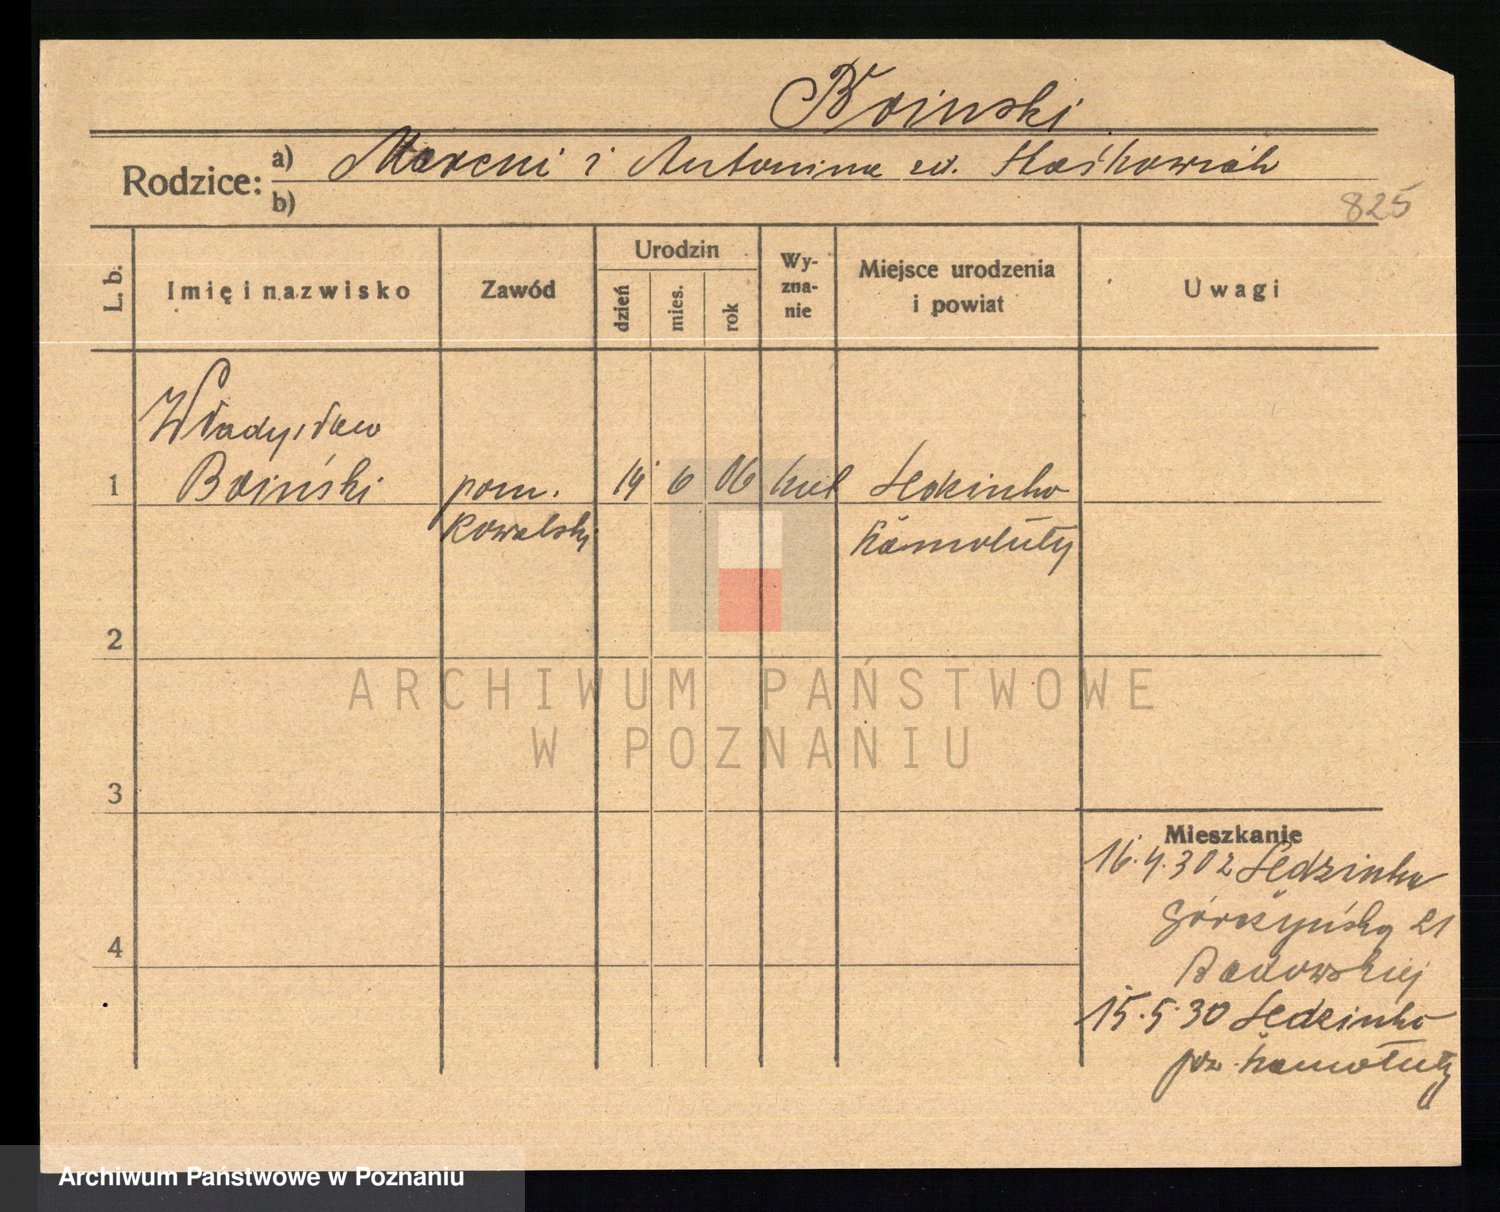 Boinski
Rodzice: a) Marcin i Antonina ur. Staśkowiak
b)
825
L. b.
Imię i nazwisko
Zawód
Urodzin
dzień
mies.
rok
Wy-
zna-
nie
Miejsce urodzenia
i powiat
Uwagi
Władysław
1 Boiński pom. 14 6 06 kat Sędzinko
kowalski Szamotuły
2
ARCHIWUM PAŃSTWOWE
W POZNANIU
3
Mieszkanie
16.4.30 z Sędzinka
Górczyńska 21
15.5.30 Sędzinko
pow. Szamotuły
4
Archiwum Państwowe w Poznaniu